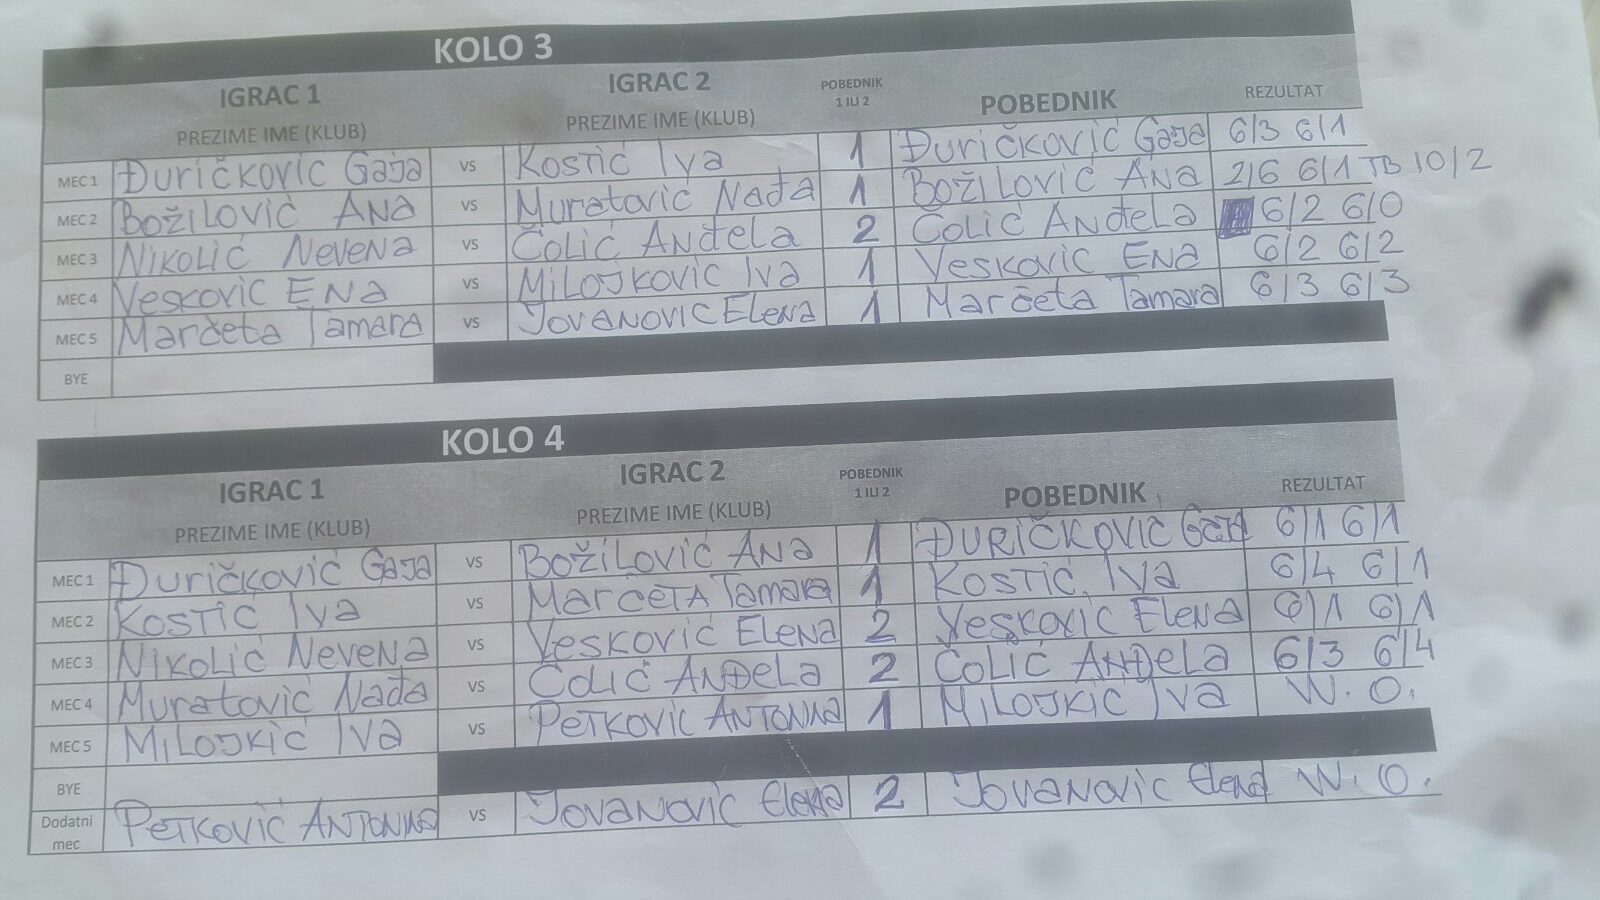 KOLO 3
IGRAC 1 IGRAC 2 POBEDNIK 1 ILI 2 POBEDNIK REZULTAT
PREZIME IME (KLUB) PREZIME IME (KLUB)
MEC 1 Đuričković Gaja VS Kostić Iva 1 Đuričković Gaja 6/3 6/1
MEC 2 Božilović Ana VS Muratović Nađa 1 Božilović Ana 2/6 6/1 TB 10/2
MEC 3 Nikolić Nevena VS Čolić Anđela 2 Čolić Anđela 6/2 6/0
MEC 4 Vesković Ena VS Milojković Iva 1 Vesković Ena 6/2 6/2
MEC 5 Marčeta Tamara VS Jovanović Elena 1 Marčeta Tamara 6/3 6/3
BYE
KOLO 4
IGRAC 1 IGRAC 2 POBEDNIK 1 ILI 2 POBEDNIK REZULTAT
PREZIME IME (KLUB) PREZIME IME (KLUB)
MEC 1 Đuričković Gaja VS Božilović Ana 1 ĐURIČKOVIĆ Gaja 6/1 6/1
MEC 2 Kostić Iva VS Marčeta Tamara 1 Kostić Iva 6/4 6/1
MEC 3 Nikolić Nevena VS Vesković Elena 2 Vesković Elena 6/1 6/1
MEC 4 Muratović Nađa VS Čolić Anđela 2 Čolić Anđela 6/3 6/4
MEC 5 Milojkić Iva VS Petković Antonina 1 Milojkić Iva W.O.
BYE
Dodatni mec Petković Antonina VS Jovanović Elena 2 Jovanović Elena W.O.